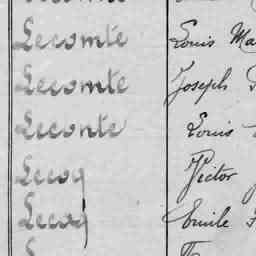 Lecomte Louis Ma
Lecomte Joseph
Leconte Louis
Lecoq Victor
Lecoq Emile